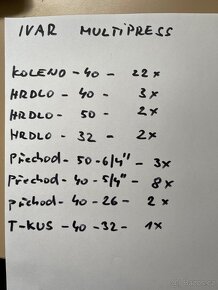 IVAR MULTIPRESS
KOLENO - 40 - 22x
HRDLO - 40 - 3x
HRDLO - 50 - 2x
HRDLO - 32 - 2x
Přechod - 50 - 6/4" - 3x
Přechod - 40 - 5/4" - 8x
přechod - 40 - 26 - 2x
T-KUS - 40 - 32 - 1x